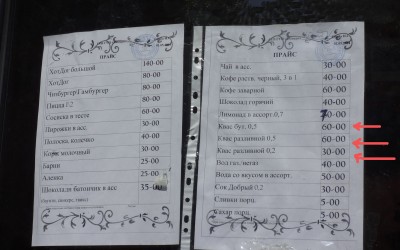 ПРАЙС
ХотДог большой 140-00
ХотДог 80-00
Чикбургер/Гамбургер 80-00
Пицца 1/2 80-00
Сосиска в тесте 60-00
Пирожки в асс 30-00
Полоски, колечко 40-00
Корж молочный 30-00
Барни 25-00
Аленка 25-00
Шоколадн батончик в асс 35-00
ПРАЙС
Чай в асс 30-00
Кофе раств. черный, 3 в 1 40-00
Кофе заварной 60-00
Шоколад горячий 40-00
Лимонад в ассорт.0,7 70-00
Квас бут, 0,5 60-00
Квас разливной 0,5 60-00
Квас разливной 0,2 30-00
Вод газ/негаз 40-00
Вода со вкусом в ассорт 50-00
Сок Добрый 0,2 30-00
Сливки порц. 5-00
Сахар порц. 5-00